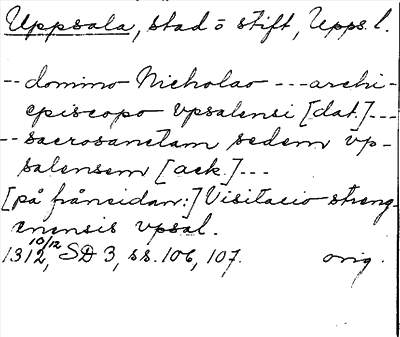 Uppsala, stad o stift, Upps. l.
-- domino Nicholao --- archi-
episcopo vpsalensi [dat.] ---
-- sacrosanctam sedem vp-
salensem [ack.] ---
[på frånsidan:] Visitacio streng-
enensis vpsal.
1312 10/12, SD 3, ss. 106, 107. orig.